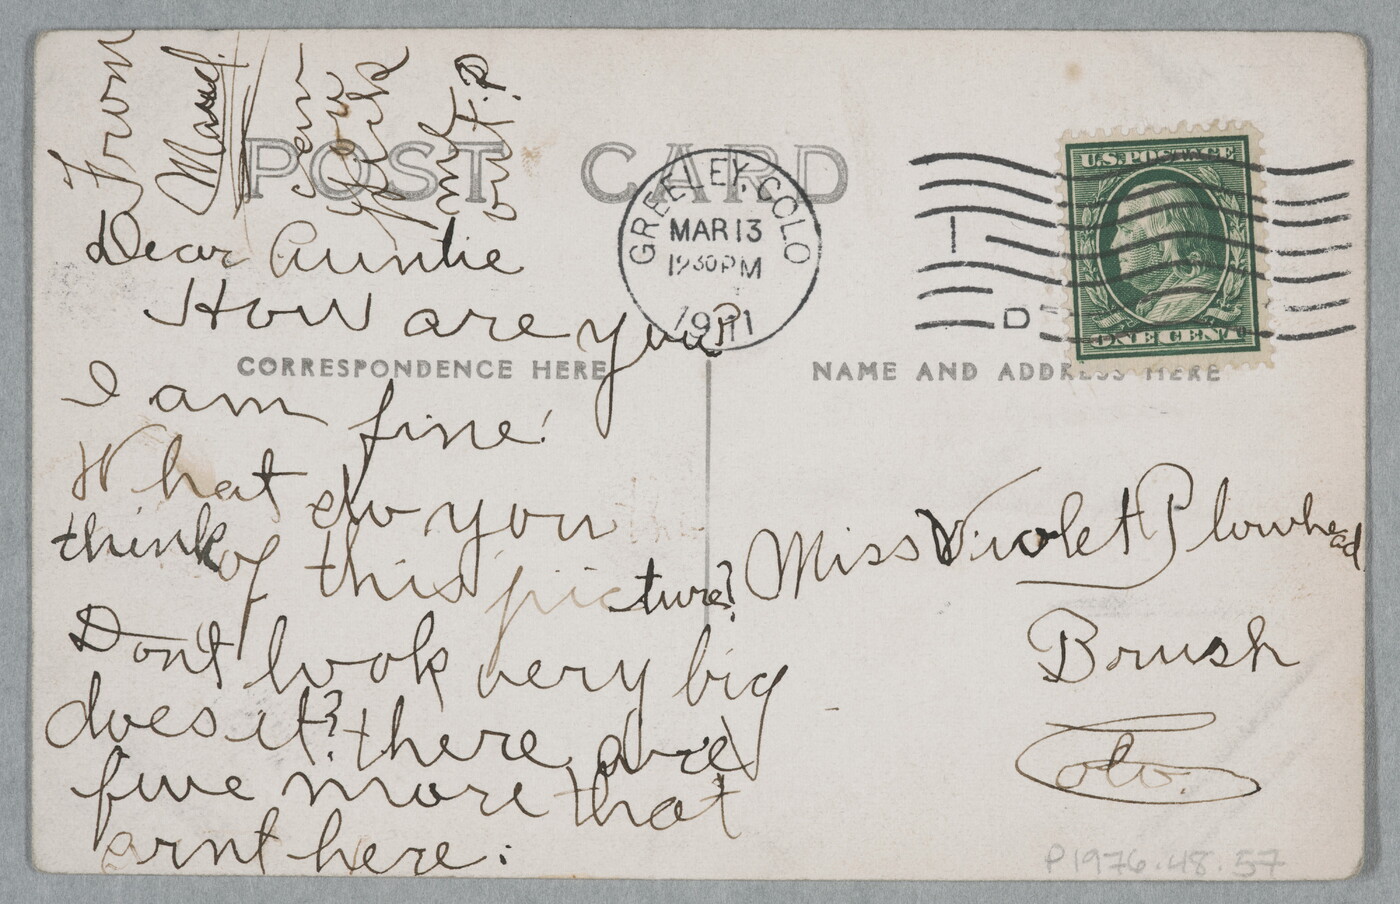 From
can
you
pick
me
out?
POST CARD
Dear Auntie
How are you?
CORRESPONDENCE HERE
I am fine!
What do you
think of this picture?
Dont look very big
does it? there are
five more that
arnt here.
GREELEY, COLO
MAR 13
1930 PM
1911
D
U.S. POSTAGE
ONE CENT
NAME AND ADDRESS HERE
Miss Violet Plowhead
Brush
Colo.
P1976.48.57